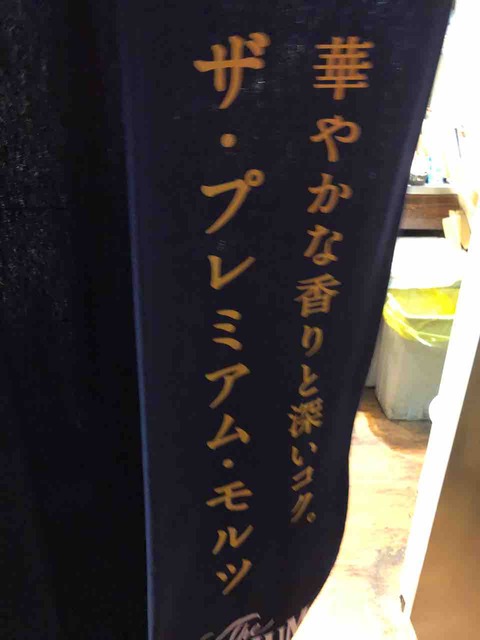 華やかな香りと深いコク。
ザ・プレミアム・モルツ
The